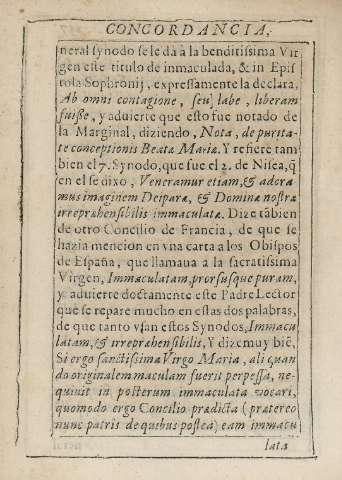 CONCORDANCIA,
neral synodo se le dà à la benditissima Vir
gen este titulo de inmaculada, & in Epis
tola Sophronij, expressamente la declara,
Ab omni contagione, seu labe, liberam
fuisse, y aduierte que esto fue notado de
la Marginal, diziendo, Nota, de purita-
te conceptionis Beatæ Mariæ. Y refiere tam
bien el 7. Synodo, que fue el 2. de Nisea, q̃
en el se dixo, Veneramur etiam, & adora
mus imaginem Deiparæ, & Dominæ nostræ
irrepræhensibilis immaculatæ. Dize tãbien
de otro Concilio de Francia, de que se
hazia mencion en vna carta a los Obispos
de España, que llamaua à la sacratissima
Virgen, Immaculatam, prorsusque puram,
y aduierte doctamente este Padre Lector
que se repare mucho en estas dos palabras,
de que tanto vsan estos Synodos, Immacu
latam, & irrepræhensibilis, Y dize muy biẽ,
Si ergo sanctissima Virgo Maria, ali quan
do originalem maculam fuerit perpessa, ne-
quiuit in posterum immaculata vocari,
quomodo ergo Concilio prædicta (prætereo
nunc patris de quibus postea) eam immacu
lata